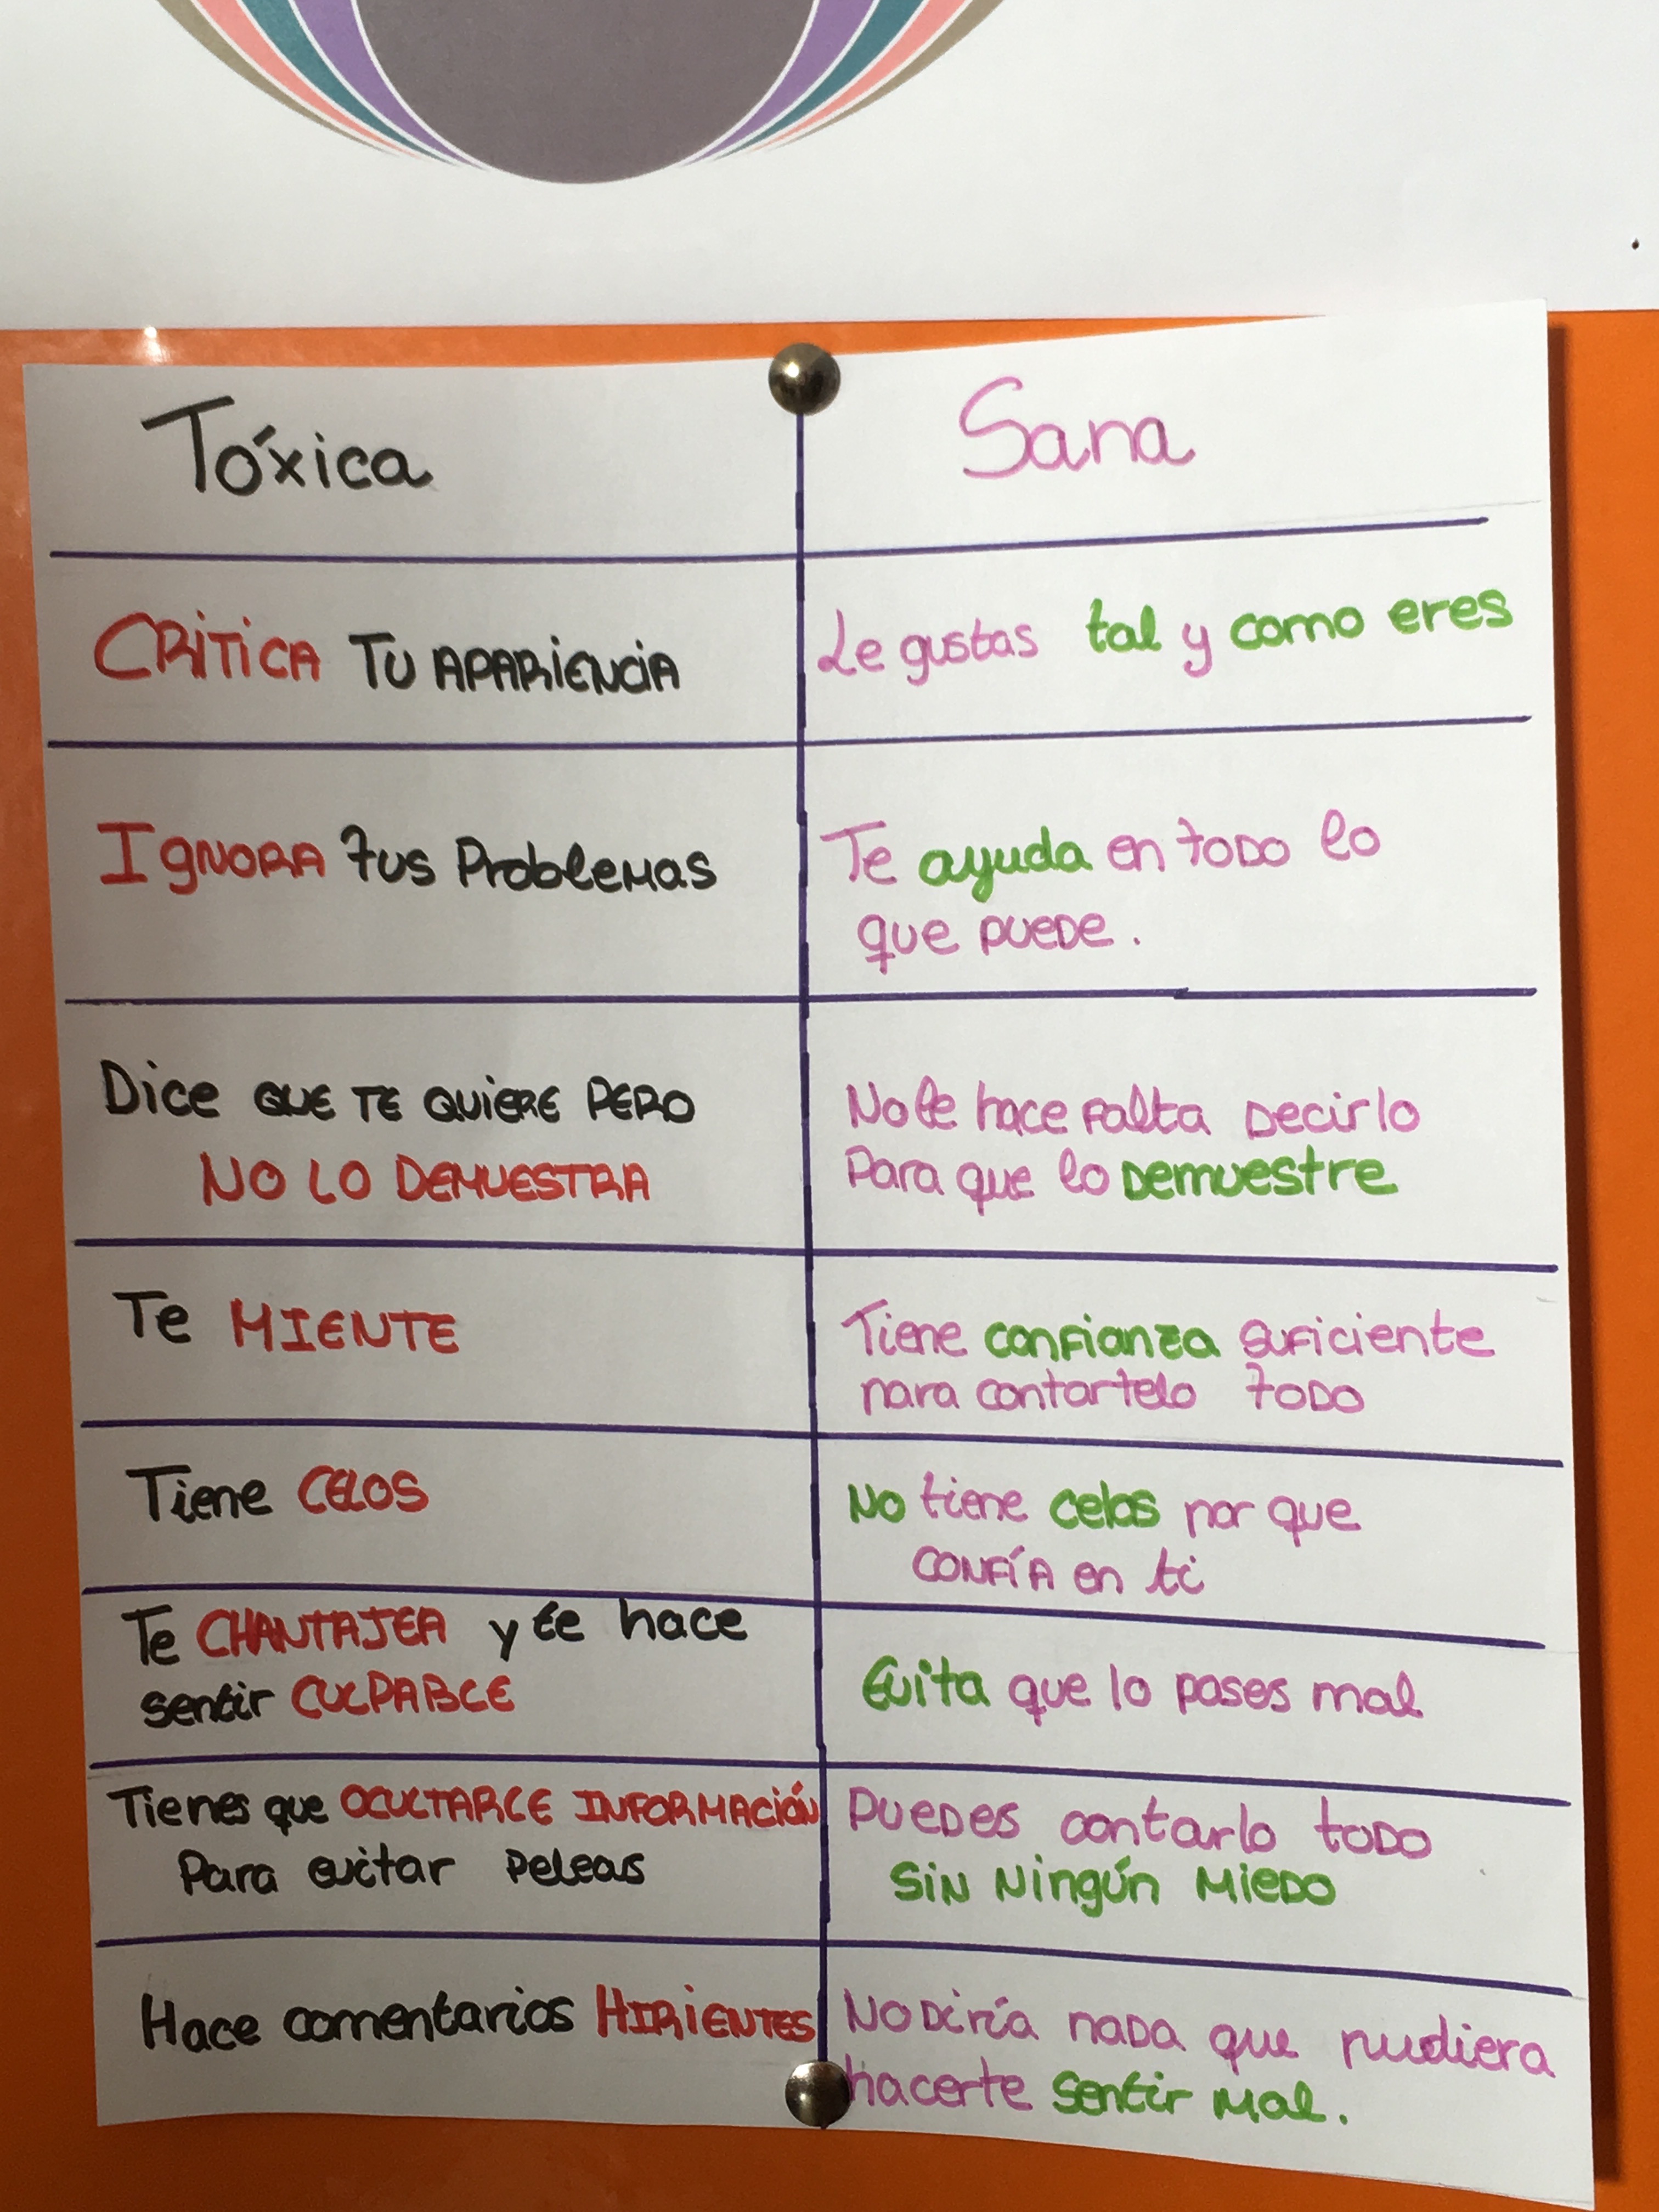 Tóxica
Sana
CRITICA TU APARIENCIA
Le gustas tal y como eres
IGNORA tus Problemas
Te ayuda en todo lo
que puede.
Dice QUE TE QUIERE PERO
NO LO DEMUESTRA
No le hace falta Decirlo
Para que lo Demuestre
Te MIENTE
Tiene confianza suficiente
para contartelo todo
Tiene CELOS
No tiene celos por que
CONFÍA en ti
Te CHANTAJEA y te hace
sentir CULPABLE
Evita que lo pases mal
Tienes que OCULTARLE INFORMACIÓN
Para evitar Peleas
PUEDES contarlo todo
SIN NINGÚN MIEDO
Hace comentarios HIRIENTES
No Diría nada que pudiera
hacerte sentir mal.